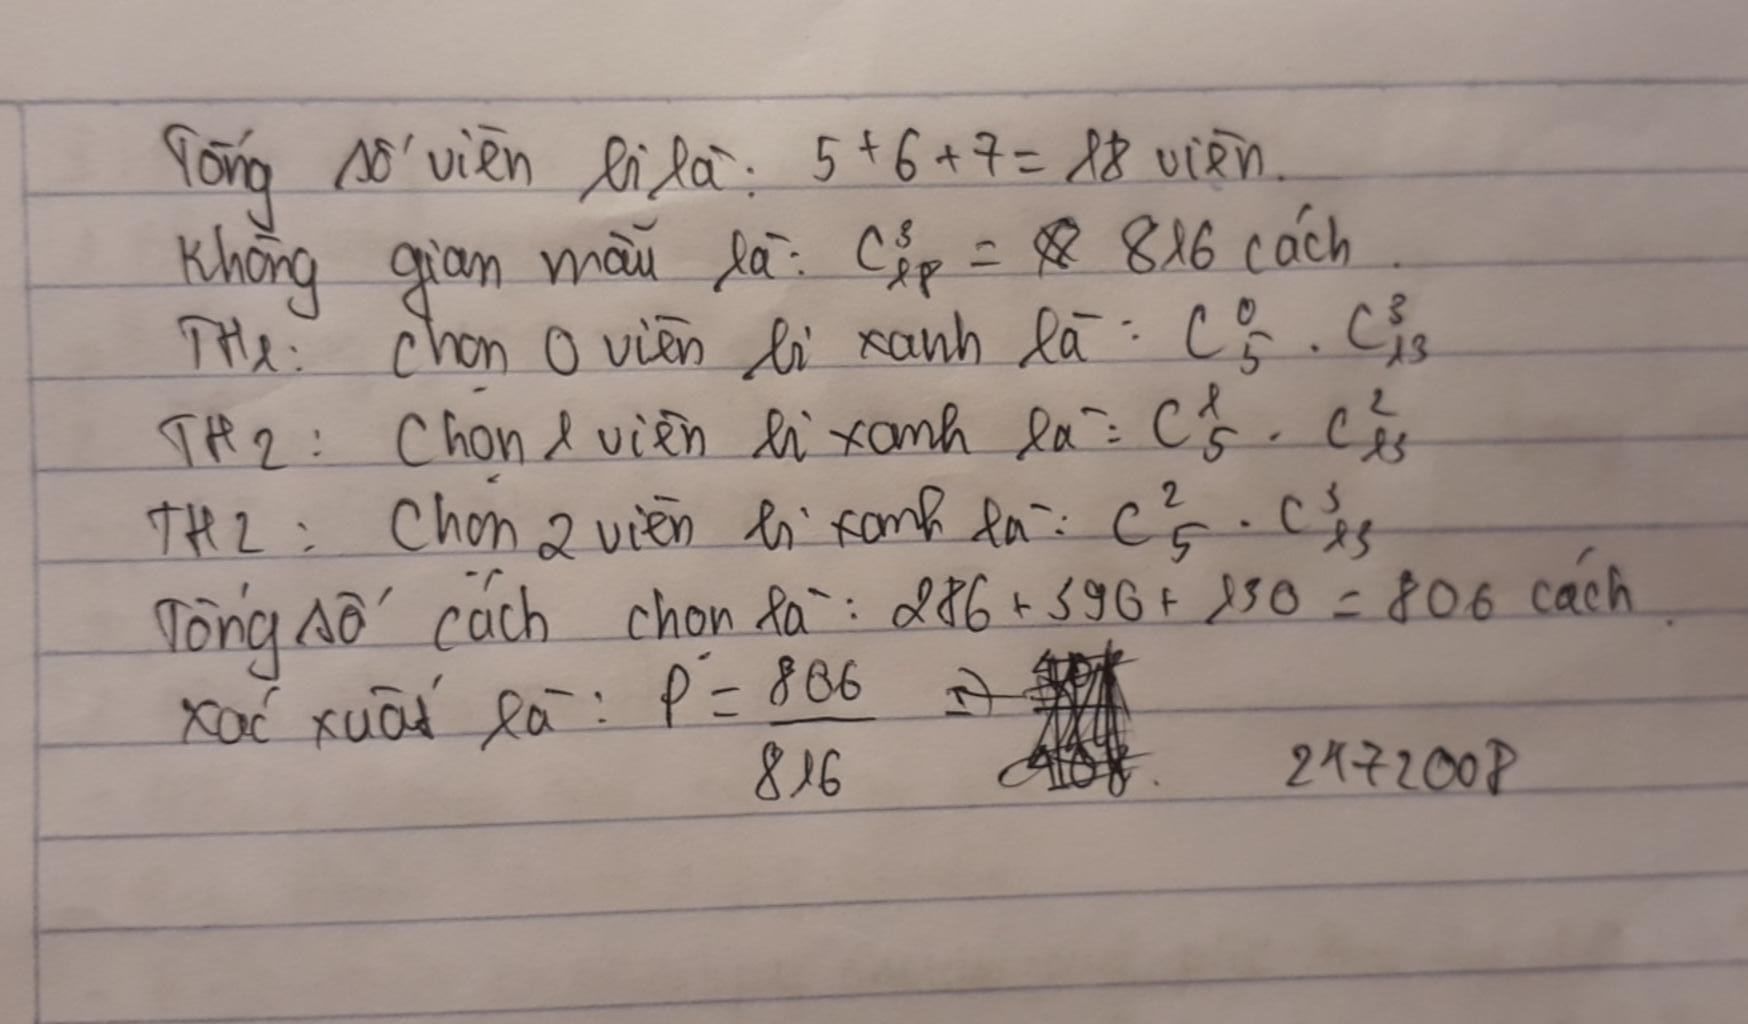 Tổng số viên bi là: 5 + 6 + 7 = 18 viên.
Không gian mẫu là: C³₁₈ = 816 cách.
TH1: Chọn 0 viên bi xanh là: C⁰₅ . C³₁₃
TH2: Chọn 1 viên bi xanh là: C¹₅ . C²₁₃
TH2: Chọn 2 viên bi xanh là: C²₅ . C³₁₃
Tổng số cách chọn là: 286 + 396 + 130 = 806 cách.
xác xuất là: P = 806/816 =>
2472008